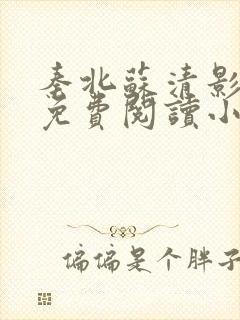 秦北蘇清影
免費閱讀小
偏偏是个胖子